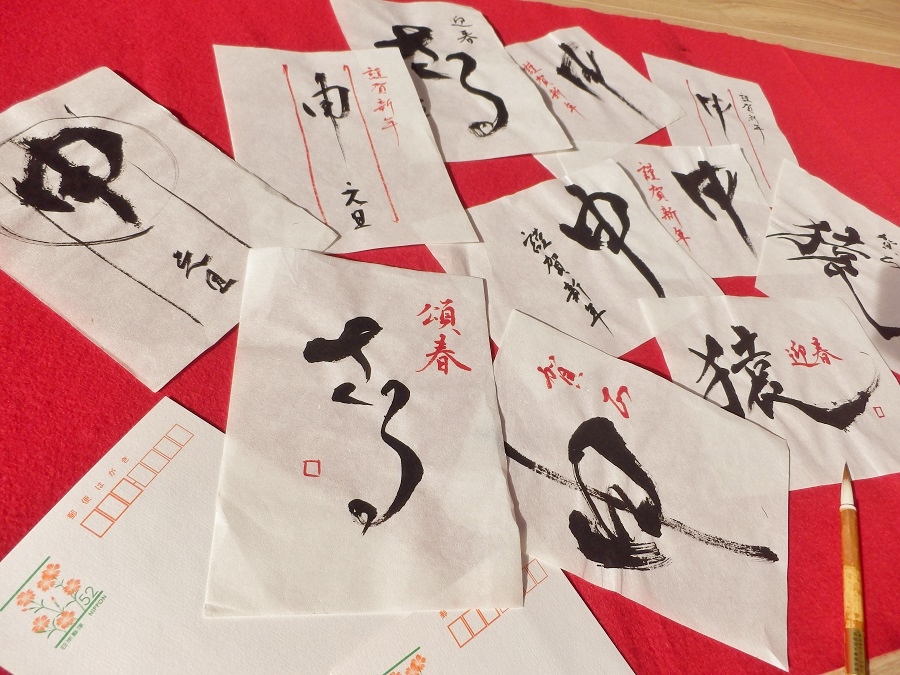 迎春
さる
謹賀新年
申
謹賀新年
申
元旦
謹賀新年
申
申
元旦
謹賀新年
申
謹賀新年
申
猿
迎春
猿
頌春
さる
賀正
申
郵便はがき
52
NIPPON
日本郵便
郵